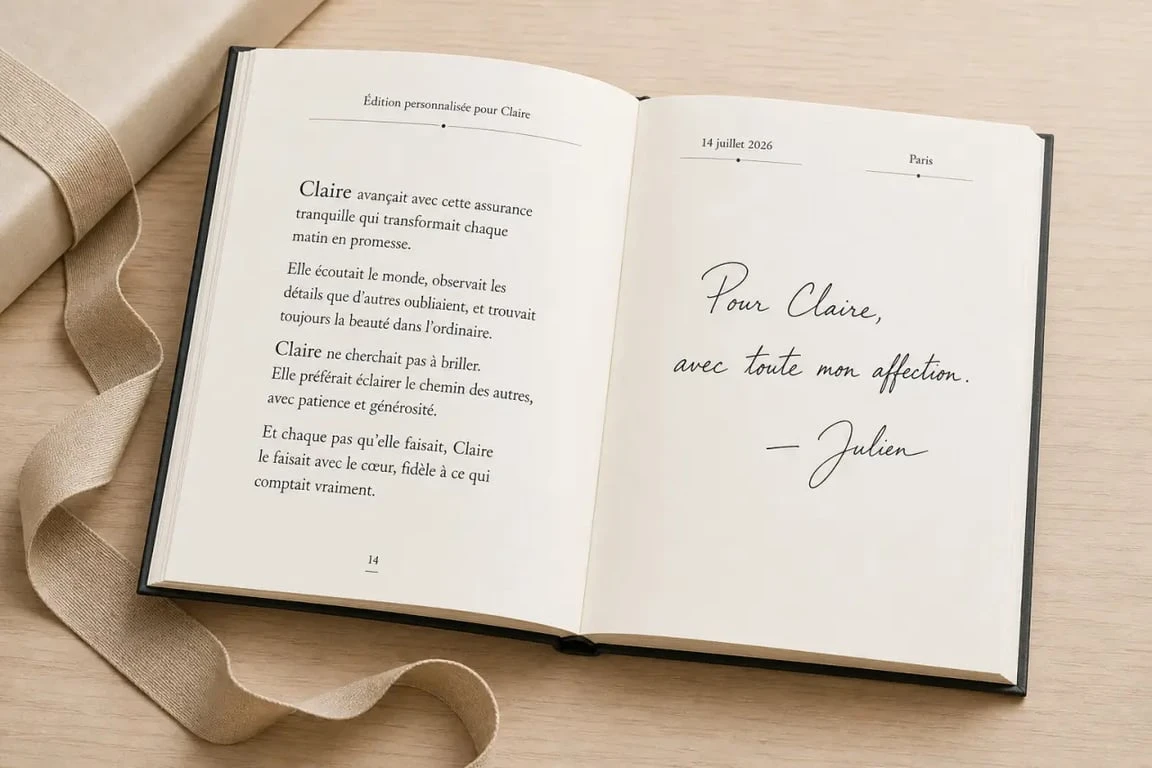 Édition personnalisée pour Claire
Claire avançait avec cette assurance
tranquille qui transformait chaque
matin en promesse.
Elle écoutait le monde, observait les
détails que d’autres oubliaient, et trouvait
toujours la beauté dans l’ordinaire.
Claire ne cherchait pas à briller.
Elle préférait éclairer le chemin des autres,
avec patience et générosité.
Et chaque pas qu’elle faisait, Claire
le faisait avec le cœur, fidèle à ce qui
comptait vraiment.
14
14 juillet 2026
Paris
Pour Claire,
avec toute mon affection.
— Julien